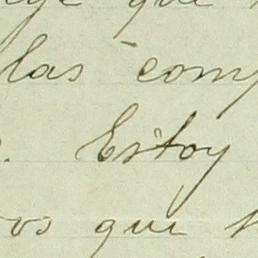 que
las com
Estoy
os que